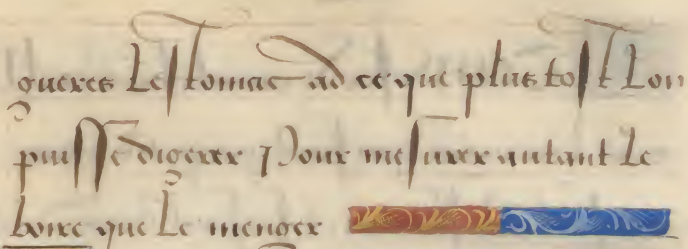 gueres Lestomac ad ce que plus tost Lon
puisse digerer Pour mesurer autant Le
boire que Le menger